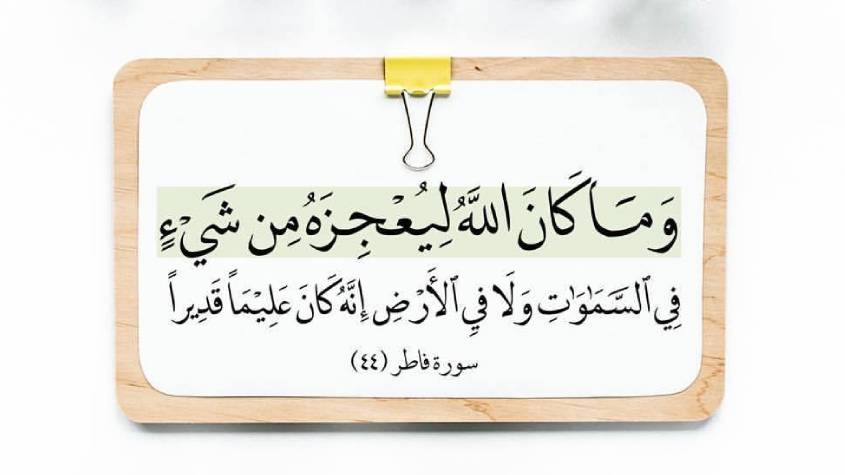 وَمَا كَانَ اللَّهُ لِيُعْجِزَهُ مِن شَيْءٍ
فِي ٱلسَّمَٰوَٰتِ وَلَا فِي ٱلْأَرْضِ إِنَّهُ كَانَ عَلِيْمَاً قَدِيراً
سورة فاطر (٤٤)